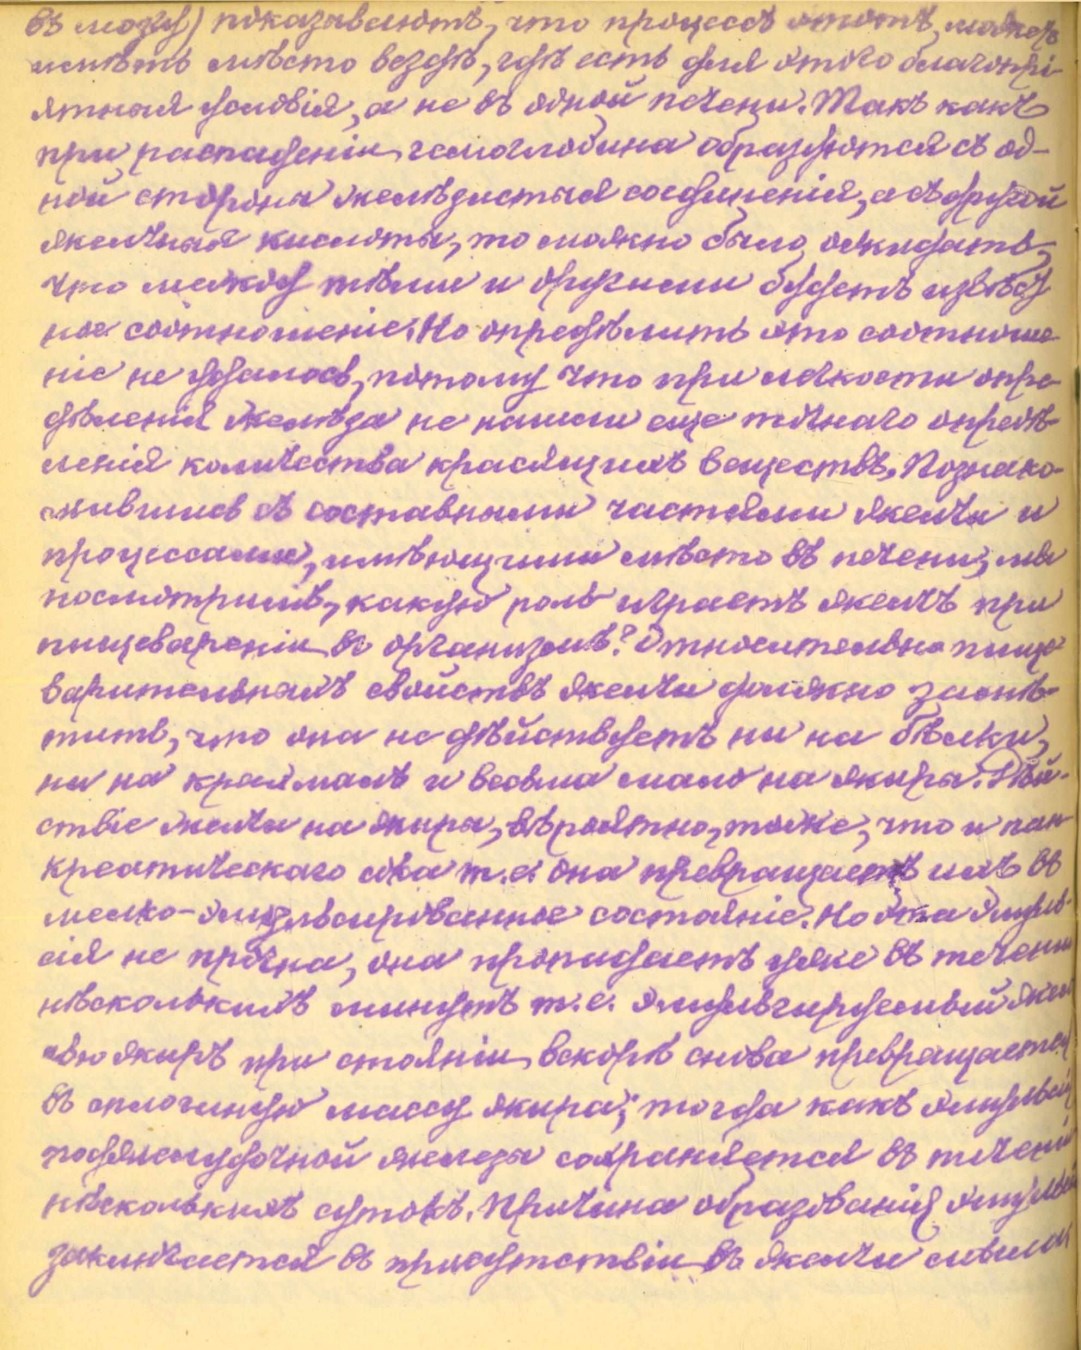 въ мозгу) показываютъ, что процессъ этотъ можетъ
имѣть мѣсто вездѣ, гдѣ есть для этого благопрі-
ятныя условія, а не въ одной печени. Такъ какъ
при распаденіи гемоглобина образуются съ од-
ной стороны желѣзистыя соединенія, а съ другой
желчныя кислоты, то можно было ожидать,
что между тѣми и другими будетъ извѣст
ное соотношеніе. Но опредѣлить это соотноше
ніе не удалось, потому что при легкости опре
дѣленія желѣза не нашли еще точнаго опредѣ-
ленія количества красящихъ веществъ. Познако-
мившись съ составными частями желчи и
процессами, имѣющими мѣсто въ печени, мы
посмотримъ, какую роль играетъ желчь при
пищевареніи въ организмѣ? Относительно пище
варительныхъ свойствъ желчи должно замѣ-
тить, что она не дѣйствуетъ ни на бѣлки,
ни на крахмалъ и весьма мало на жиры. Дѣй-
ствіе желчи на жиры, вѣроятно, тоже, что и пан
креатическаго сока т.е. она превращаетъ ихъ въ
мелко-эмульсированное состояніе. Но эта эмуль-
сія не прочна, она пропадаетъ уже въ теченіи
нѣсколькихъ минутъ т.е. эмульгируемый жел
чью жиръ при стояніи вскорѣ снова превращается
въ сплошную массу жира; тогда какъ эмульсія
поджелудочной железы сохраняется въ теченіи
нѣсколькихъ сутокъ. Причина образованія эмульсіи
заключается въ присутствіи въ желчи